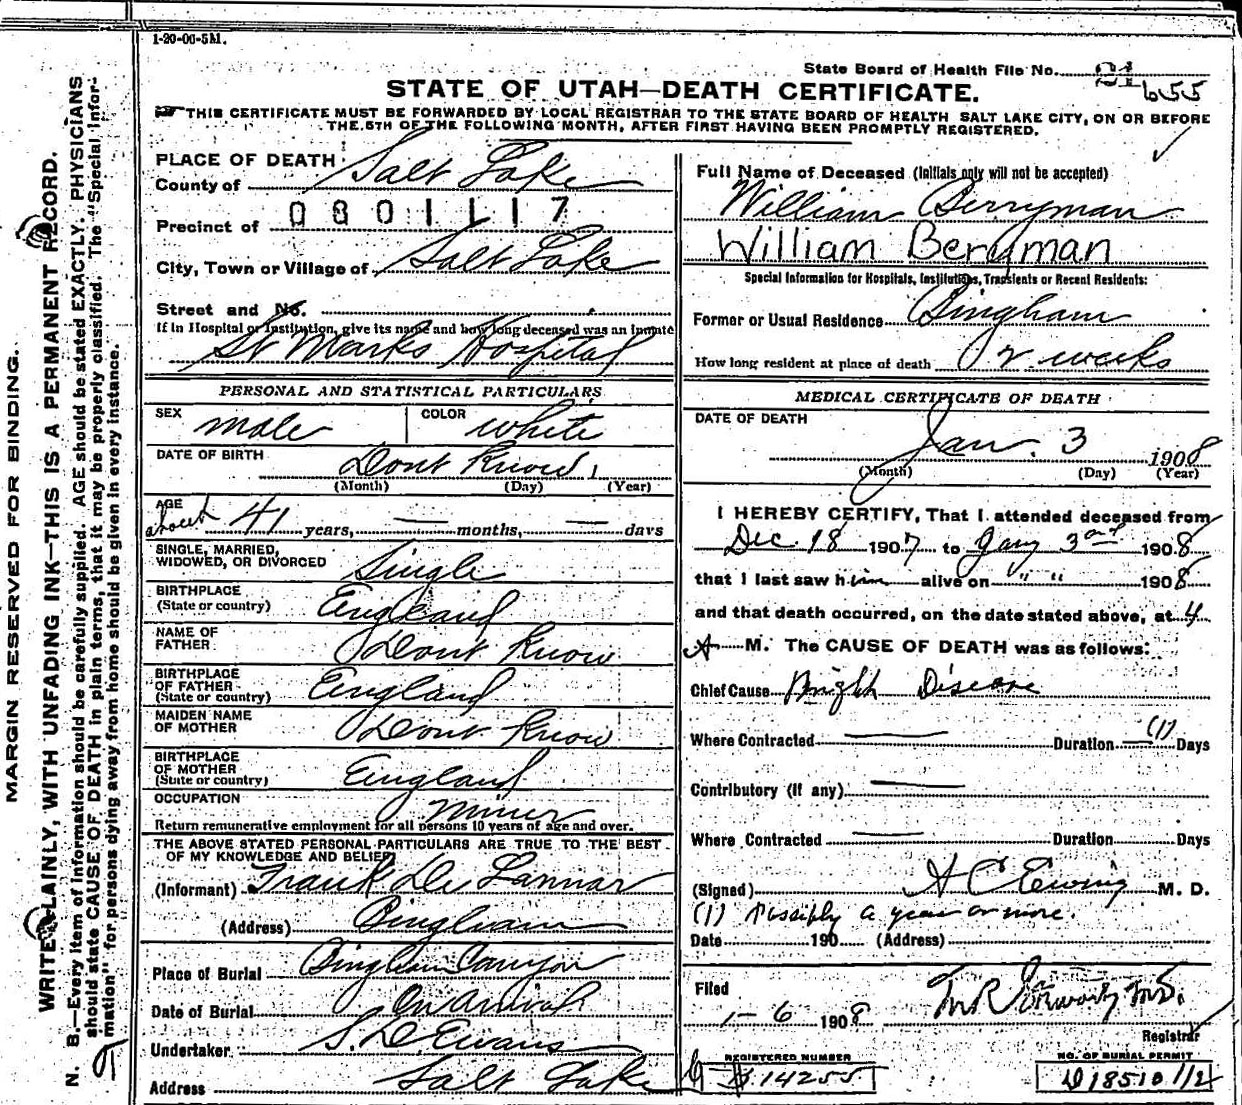 1-20-00-5M.
State Board of Health File No. 21
655
STATE OF UTAH—DEATH CERTIFICATE.
THIS CERTIFICATE MUST BE FORWARDED BY LOCAL REGISTRAR TO THE STATE BOARD OF HEALTH SALT LAKE CITY, ON OR BEFORE
THE 5TH OF THE FOLLOWING MONTH, AFTER FIRST HAVING BEEN PROMPTLY REGISTERED.
MARGIN RESERVED FOR BINDING.
WRITE PLAINLY, WITH UNFADING INK—THIS IS A PERMANENT RECORD.
N. B.—Every item of information should be carefully supplied. AGE should be stated EXACTLY. PHYSICIANS
should state CAUSE OF DEATH in plain terms, that it may be properly classified. The "Special Infor-
mation" for persons dying away from home should be given in every instance.
PLACE OF DEATH
County of Salt Lake
Precinct of 0801117
City, Town or Village of Salt Lake
Street and No.
If in Hospital or Institution, give its name and how long deceased was an inmate
St Marks Hospital
PERSONAL AND STATISTICAL PARTICULARS
SEX male COLOR white
DATE OF BIRTH Dont Know
(Month) (Day) (Year)
AGE about 41 years, — months, — days
SINGLE, MARRIED,
WIDOWED, OR DIVORCED Single
BIRTHPLACE
(State or country) England
NAME OF
FATHER Dont Know
BIRTHPLACE
OF FATHER
(State or country) England
MAIDEN NAME
OF MOTHER Dont Know
BIRTHPLACE
OF MOTHER
(State or country) England
OCCUPATION Miner
Return remunerative employment for all persons 10 years of age and over.
THE ABOVE STATED PERSONAL PARTICULARS ARE TRUE TO THE BEST
OF MY KNOWLEDGE AND BELIEF
(Informant) Frank De Lannar
(Address) Bingham
Place of Burial Bingham Canyon
Date of Burial On Arrival
Undertaker S. D Evans
Address Salt Lake
Full Name of Deceased (Initials only will not be accepted)
William Berryman
William Berryman
Special Information for Hospitals, Institutions, Transients or Recent Residents:
Former or Usual Residence Bingham
How long resident at place of death 2 weeks
MEDICAL CERTIFICATE OF DEATH
DATE OF DEATH
Jan. 3 1908
(Month) (Day) (Year)
I HEREBY CERTIFY, That I attended deceased from
Dec. 18 1907 to Jany 3rd 1908
that I last saw him alive on " " 1908
and that death occurred, on the date stated above, at 4
A M. The CAUSE OF DEATH was as follows:
Chief Cause Bright Disease
Where Contracted — Duration (1) Days
Contributory (if any) —
Where Contracted — Duration Days
(Signed) A C Ewing M. D.
(1) Possibly a year or more.
Date 190 (Address)
Filed
1-6 1908
Registrar
REGISTERED NUMBER
14255
NO. OF BURIAL PERMIT
D 18510 1/2